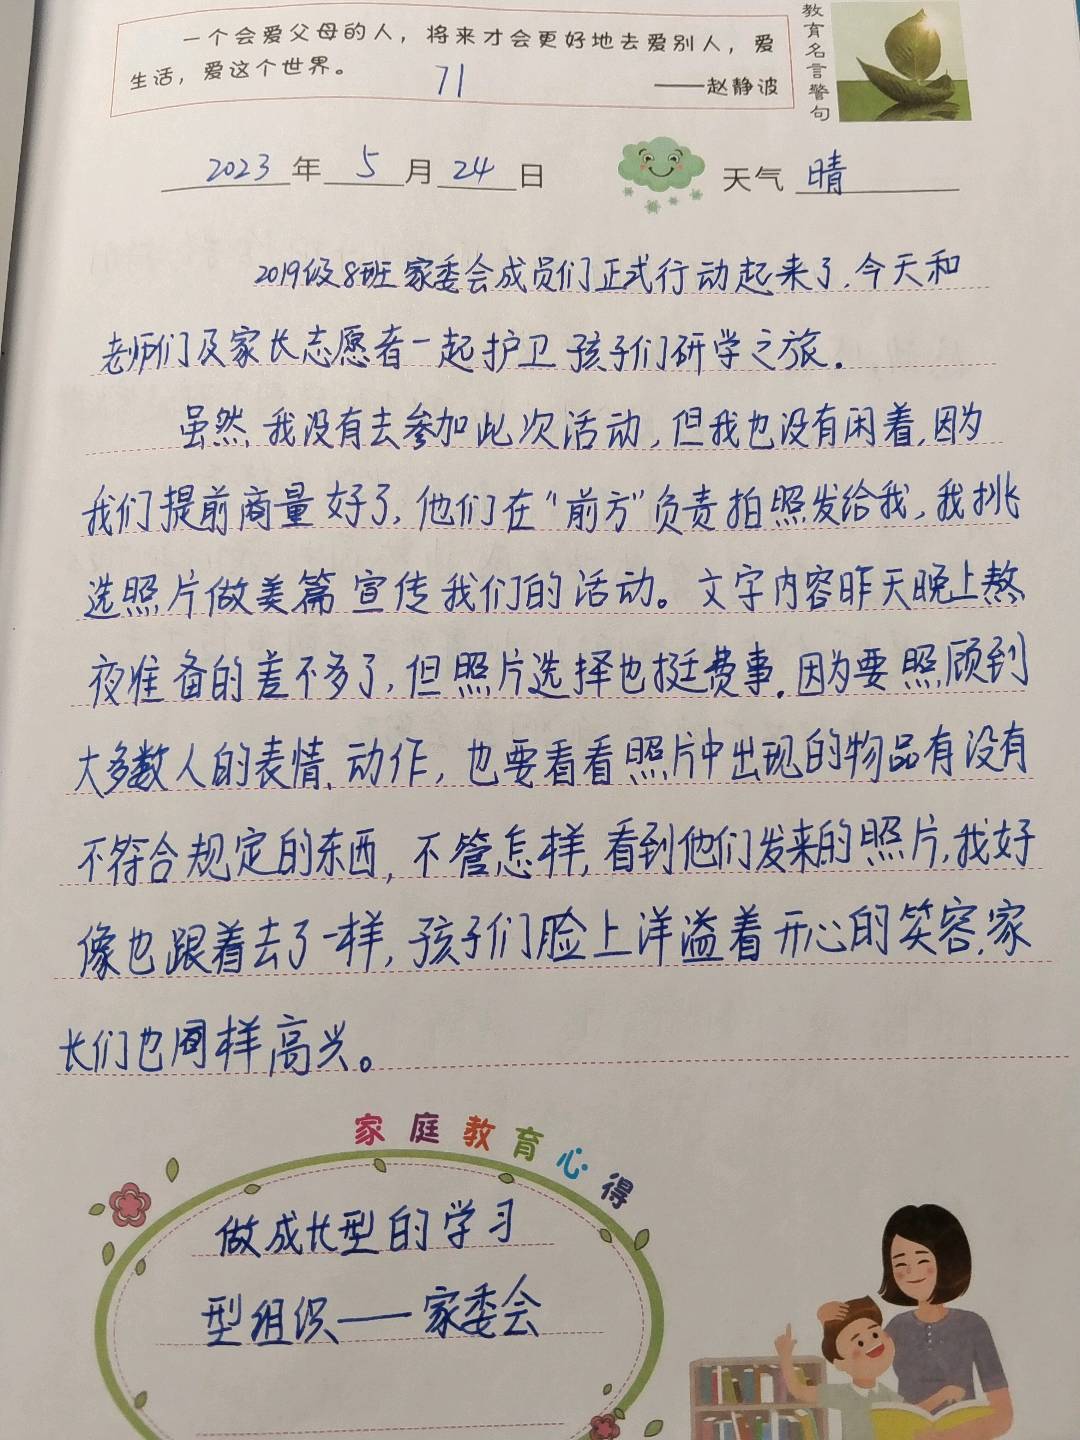 一个会爱父母的人，将来才会更好地去爱别人，爱
生活，爱这个世界。
71
——赵静波
教育名言警句
2023年5月24日
天气 晴
2019级8班家委会成员们正式行动起来了.今天和
老师们及家长志愿者一起护卫孩子们研学之旅.
虽然,我没有去参加此次活动,但我也没有闲着,因为
我们提前商量好了,他们在"前方"负责拍照发给我,我挑
选照片做美篇宣传我们的活动。文字内容昨天晚上熬
夜准备的差不多了,但照片选择也挺费事.因为要照顾到
大多数人的表情、动作,也要看看照片中出现的物品有没有
不符合规定的东西,不管怎样,看到他们发来的照片,我好
像也跟着去了一样,孩子们脸上洋溢着开心的笑容,家
长们也同样高兴。
家庭教育心得
做成长型的学习
型组织——家委会